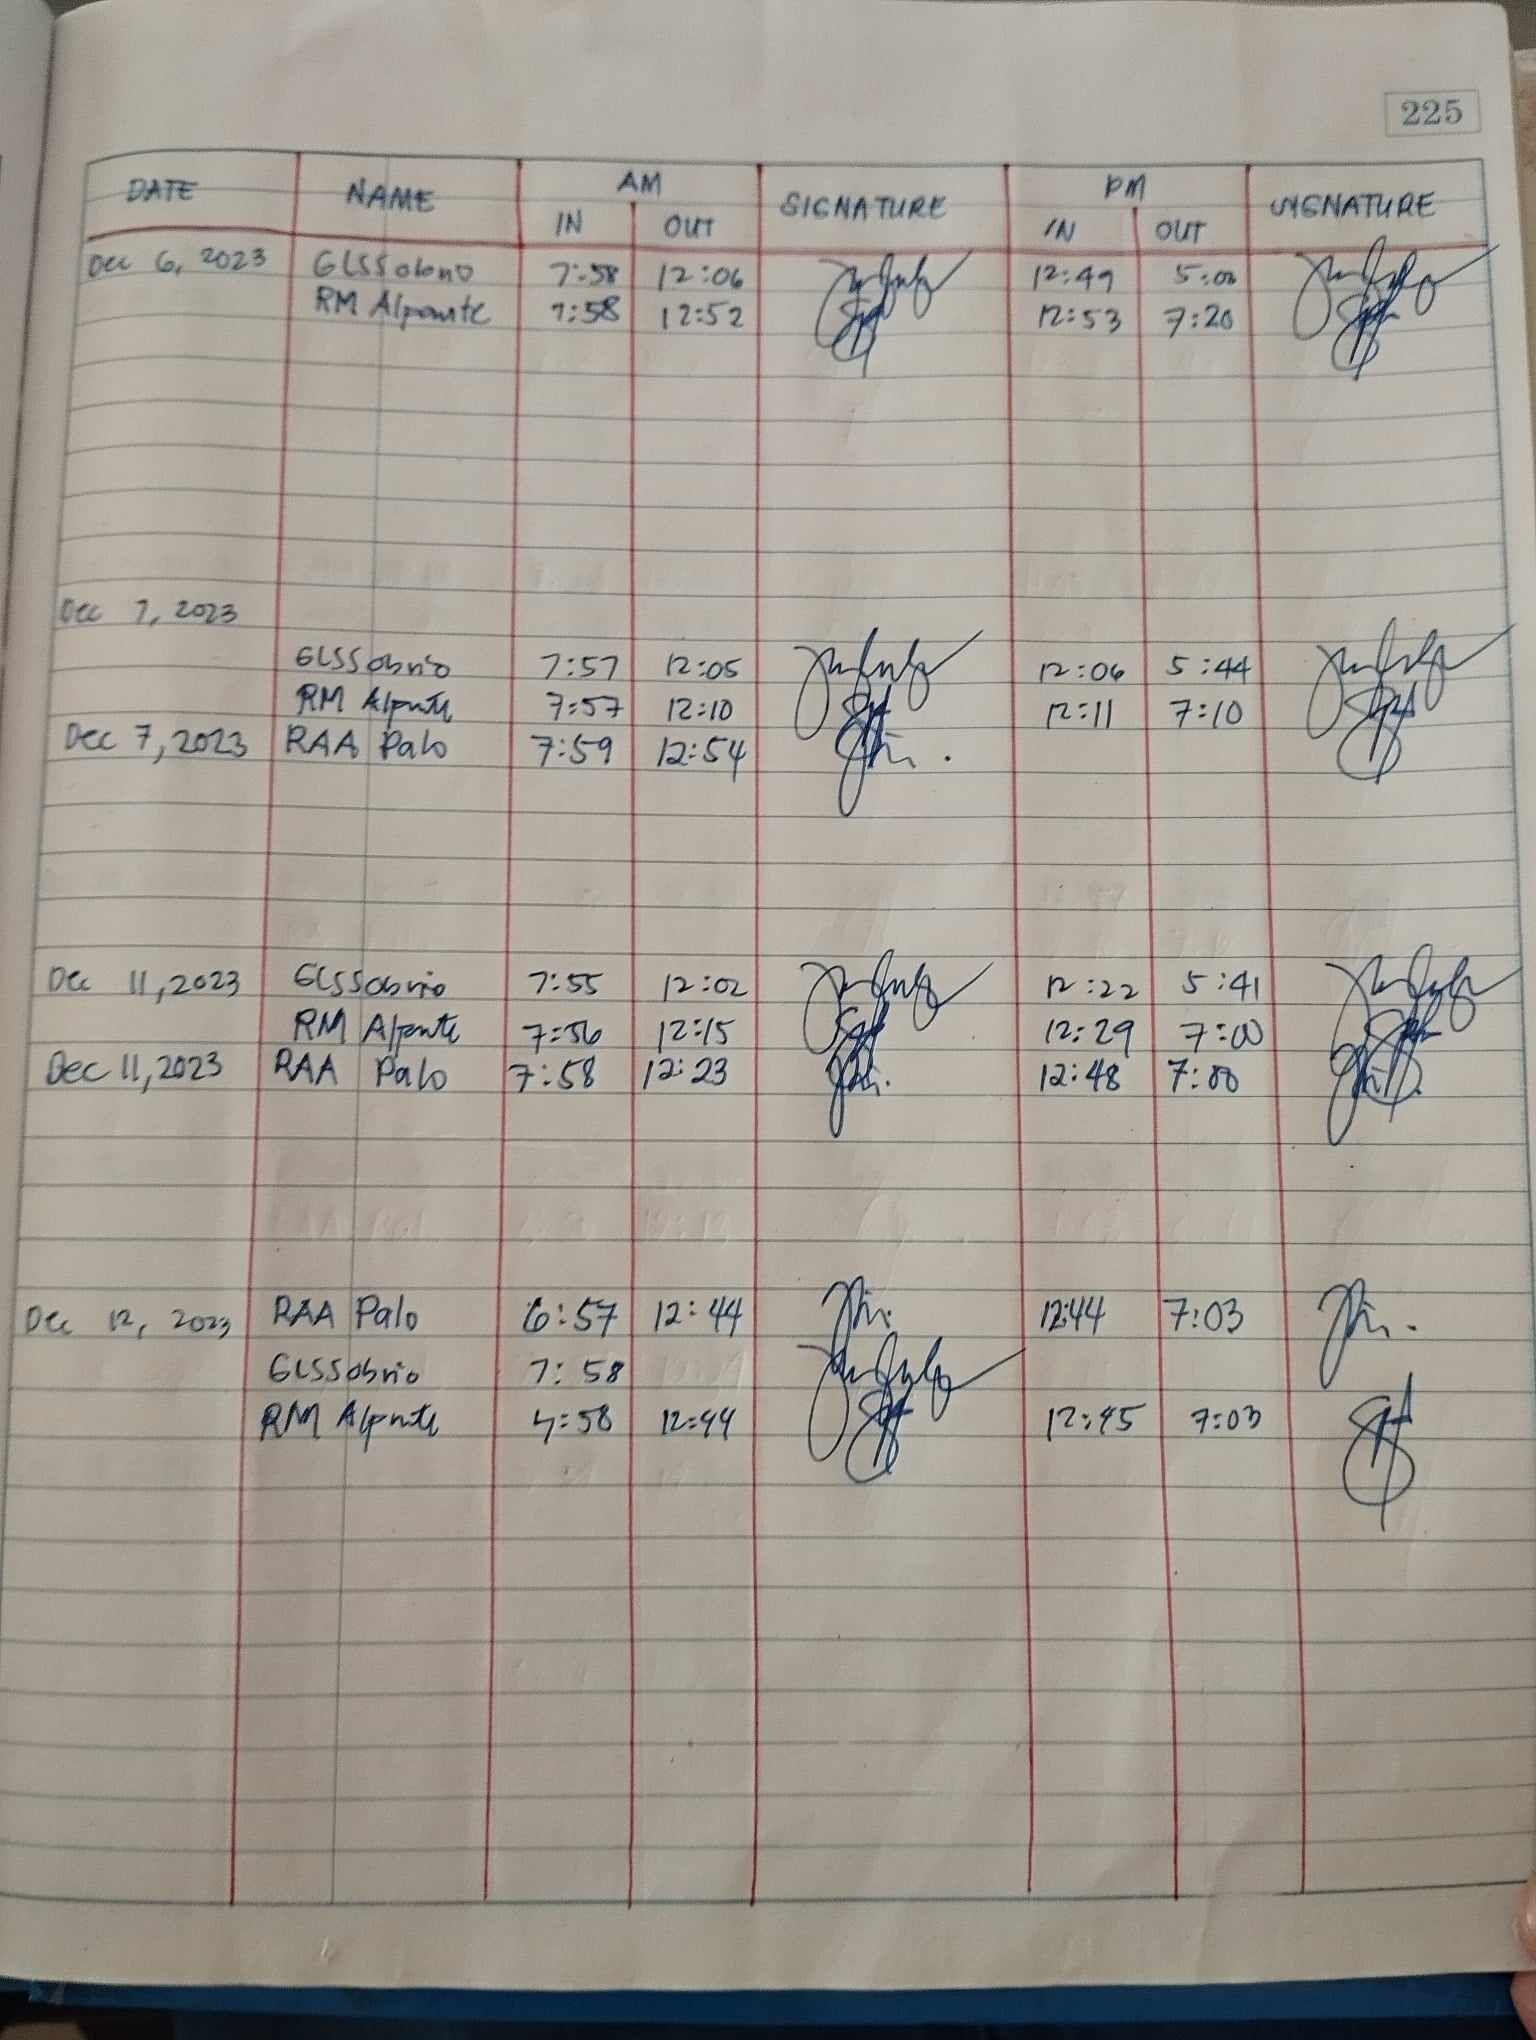 225
DATE NAME AM SIGNATURE PM SIGNATURE
IN OUT IN OUT
Dec 6, 2023 GLSSobrio 7:58 12:06 12:49 5:00
RM Alponte 7:58 12:52 12:53 7:20
Dec 7, 2023
GLSSobrio 7:57 12:05 12:06 5:44
RM Alponte 7:57 12:10 12:11 7:10
Dec 7, 2023 RAA Palo 7:59 12:54
Dec 11, 2023 GLSSobrio 7:55 12:02 12:22 5:41
RM Alponte 7:56 12:15 12:29 7:00
Dec 11, 2023 RAA Palo 7:58 12:23 12:48 7:00
Dec 12, 2023 RAA Palo 6:57 12:44 12:44 7:03
GLSSobrio 7:58
RM Alponte 7:58 12:44 12:45 7:03